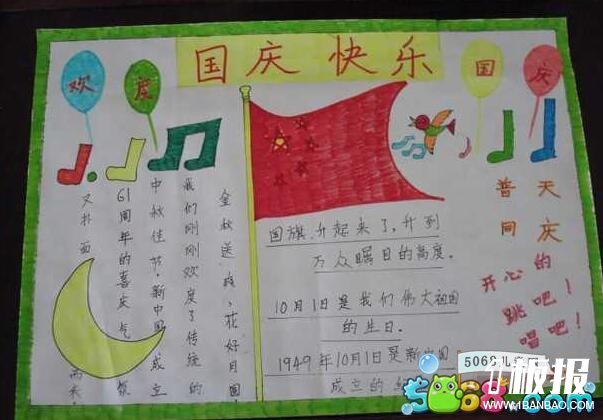 国庆 快乐
欢 度 国 庆
金秋送爽、花好月圆
我们刚刚欢度了传统的
中秋佳节,新中国成立
61周年的喜庆气氛
又扑面而来
国旗升起来了,升到
万众瞩目的高度。
10月1日是我们伟大祖国
的生日。
1949年10月1日是新中国
成立的
普天
同庆
开心的
跳吧!
唱吧!
5068儿
板报
www.1BANBAO.com